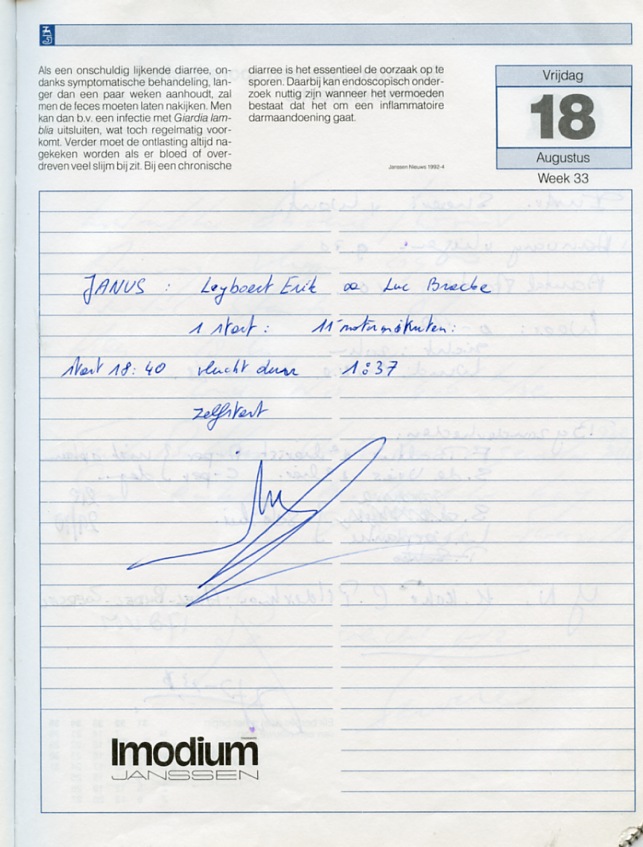 Als een onschuldig lijkende diarree, on-
danks symptomatische behandeling, lan-
ger dan een paar weken aanhoudt, zal
men de feces moeten laten nakijken. Men
kan dan b.v. een infectie met Giardia lam-
blia uitsluiten, wat toch regelmatig voor-
komt. Verder moet de ontlasting altijd na-
gekeken worden als er bloed of over-
dreven veel slijm bij zit. Bij een chronische
diarree is het essentieel de oorzaak op te
sporen. Daarbij kan endoscopisch onder-
zoek nuttig zijn wanneer het vermoeden
bestaat dat het om een inflammatoire
darmaandoening gaat.
Janssen Nieuws 1992-4
Vrijdag
18
Augustus
Week 33
JANUS : Leyboert Erik ∞ Luc Bracke
1 start : 11 motorminuten :
start 18:40 vlucht duur 1:37
zelfstart
Imodium
JANSSEN